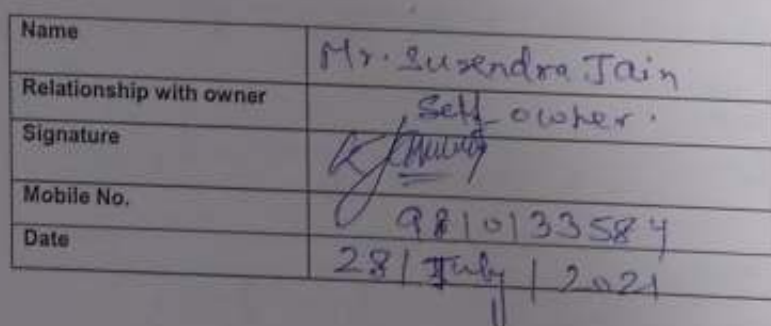 Name Mr. Surendra Jain
Relationship with owner Self owner.
Signature
Mobile No. 9810133584
Date 28/July/2021